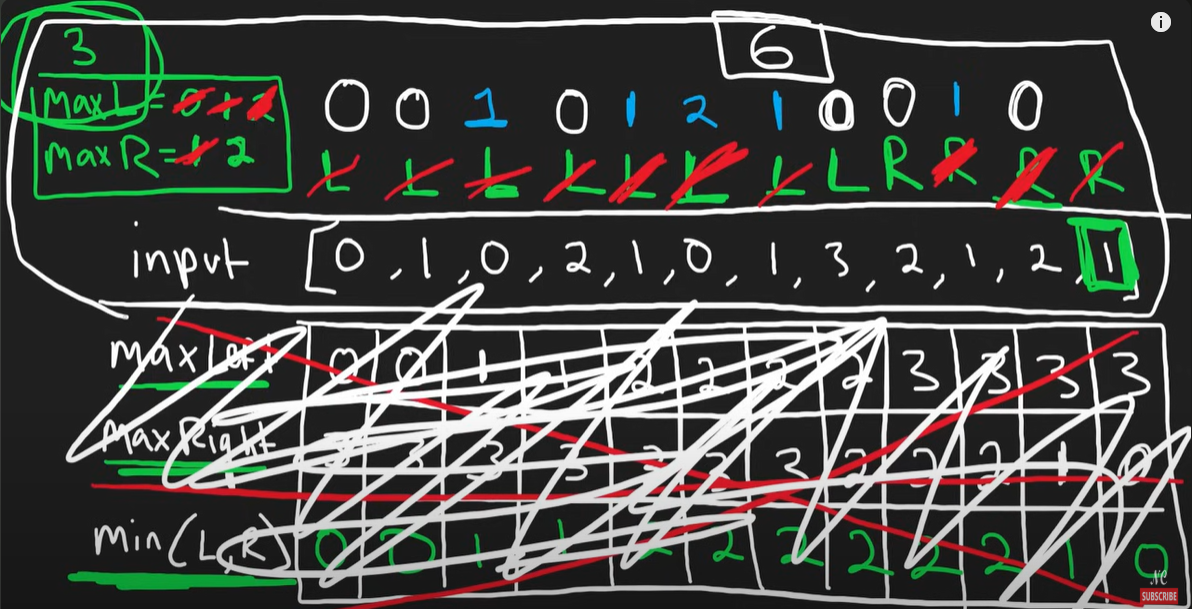 3
6
maxL = 0 1 2
maxR = 1 2
0 0 1 0 1 2 1 0 0 1 0
L L L L L L L L R R R R
input [0, 1, 0, 2, 1, 0, 1, 3, 2, 1, 2, 1]
maxLeft 0 0 1 1 2 2 2 2 3 3 3 3
maxRight 3 3 3 3 3 3 3 2 2 2 1 0
min(L,R) 0 0 1 1 2 2 2 2 2 2 1 0
NC
SUBSCRIBE
i